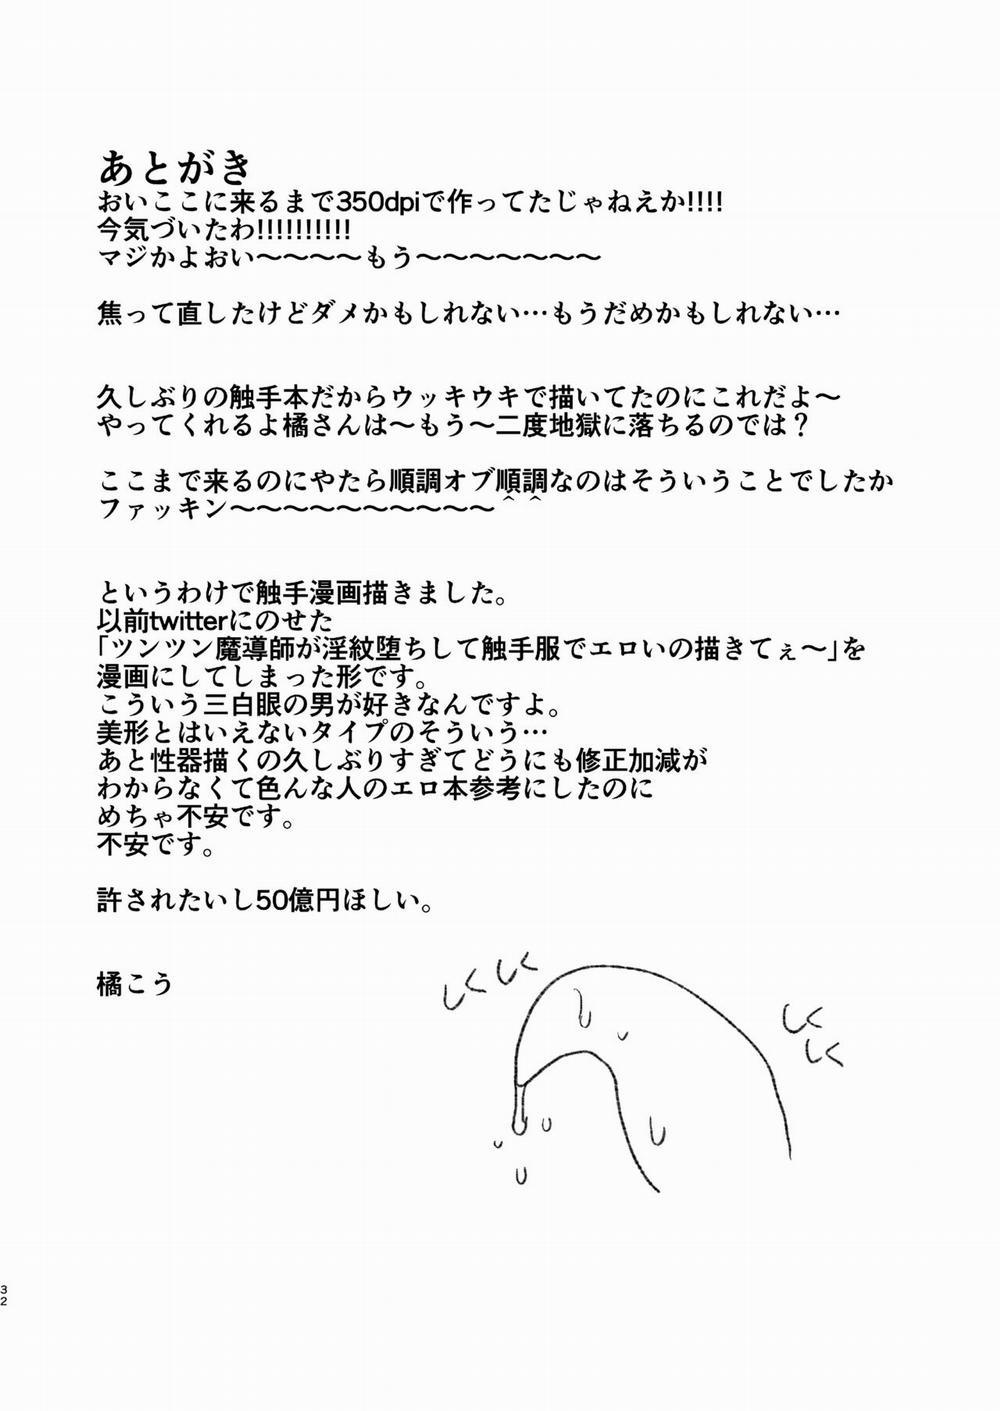 あとがき
おいここに来るまで350dpiで作ってたじゃねえか!!!!
今気づいたわ!!!!!!!!!!
マジかよおい～～～～もう～～～～～～～
焦って直したけどダメかもしれない…もうだめかもしれない…
久しぶりの触手本だからウッキウキで描いてたのにこれだよ～
やってくれるよ橘さんは～もう～二度地獄に落ちるのでは？
ここまで来るのにやたら順調オブ順調なのはそういうことでしたか
ファッキン～～～～～～～～～～＾＾
というわけで触手漫画描きました。
以前twitterにのせた
「ツンツン魔導師が淫紋堕ちして触手服でエロいの描きてぇ～」を
漫画にしてしまった形です。
こういう三白眼の男が好きなんですよ。
美形とはいえないタイプのそういう…
あと性器描くの久しぶりすぎてどうにも修正加減が
わからなくて色んな人のエロ本参考にしたのに
めちゃ不安です。
不安です。
許されたいし50億円ほしい。
橘こう
しくしく
しくしく
32